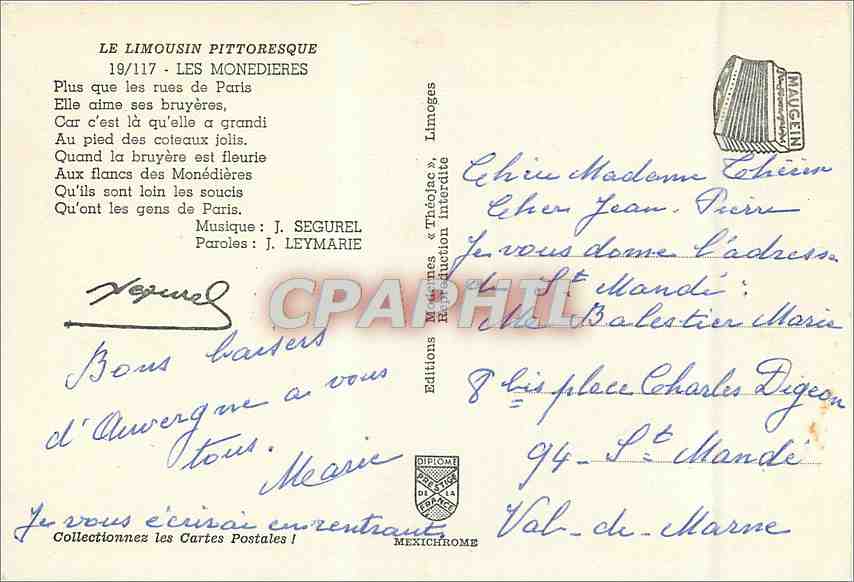 LE LIMOUSIN PITTORESQUE
19/117 - LES MONEDIERES
Plus que les rues de Paris
Elle aime ses bruyères,
Car c'est là qu'elle a grandi
Au pied des coteaux jolis.
Quand la bruyère est fleurie
Aux flancs des Monédières
Qu'ils sont loin les soucis
Qu'ont les gens de Paris.
Musique : J. SEGUREL
Paroles : J. LEYMARIE
Segurel
Bons baisers
d'Auvergne a vous
tous.
Marie
Je vous écrirai en rentrant.
Collectionnez les Cartes Postales !
Editions Modernes « Théojac », Limoges
Reproduction interdite
DIPLOME
PRESTIGE
DE LA
FRANCE
MEXICHROME
MAUGEIN
Chère Madame
Cher Jean-Pierre
Je vous donne l'adresse
de St Mandé :
Me Balestier Marie
8 bis place Charles Digeon
94 - St Mandé
Val-de-Marne
CPAPHIL